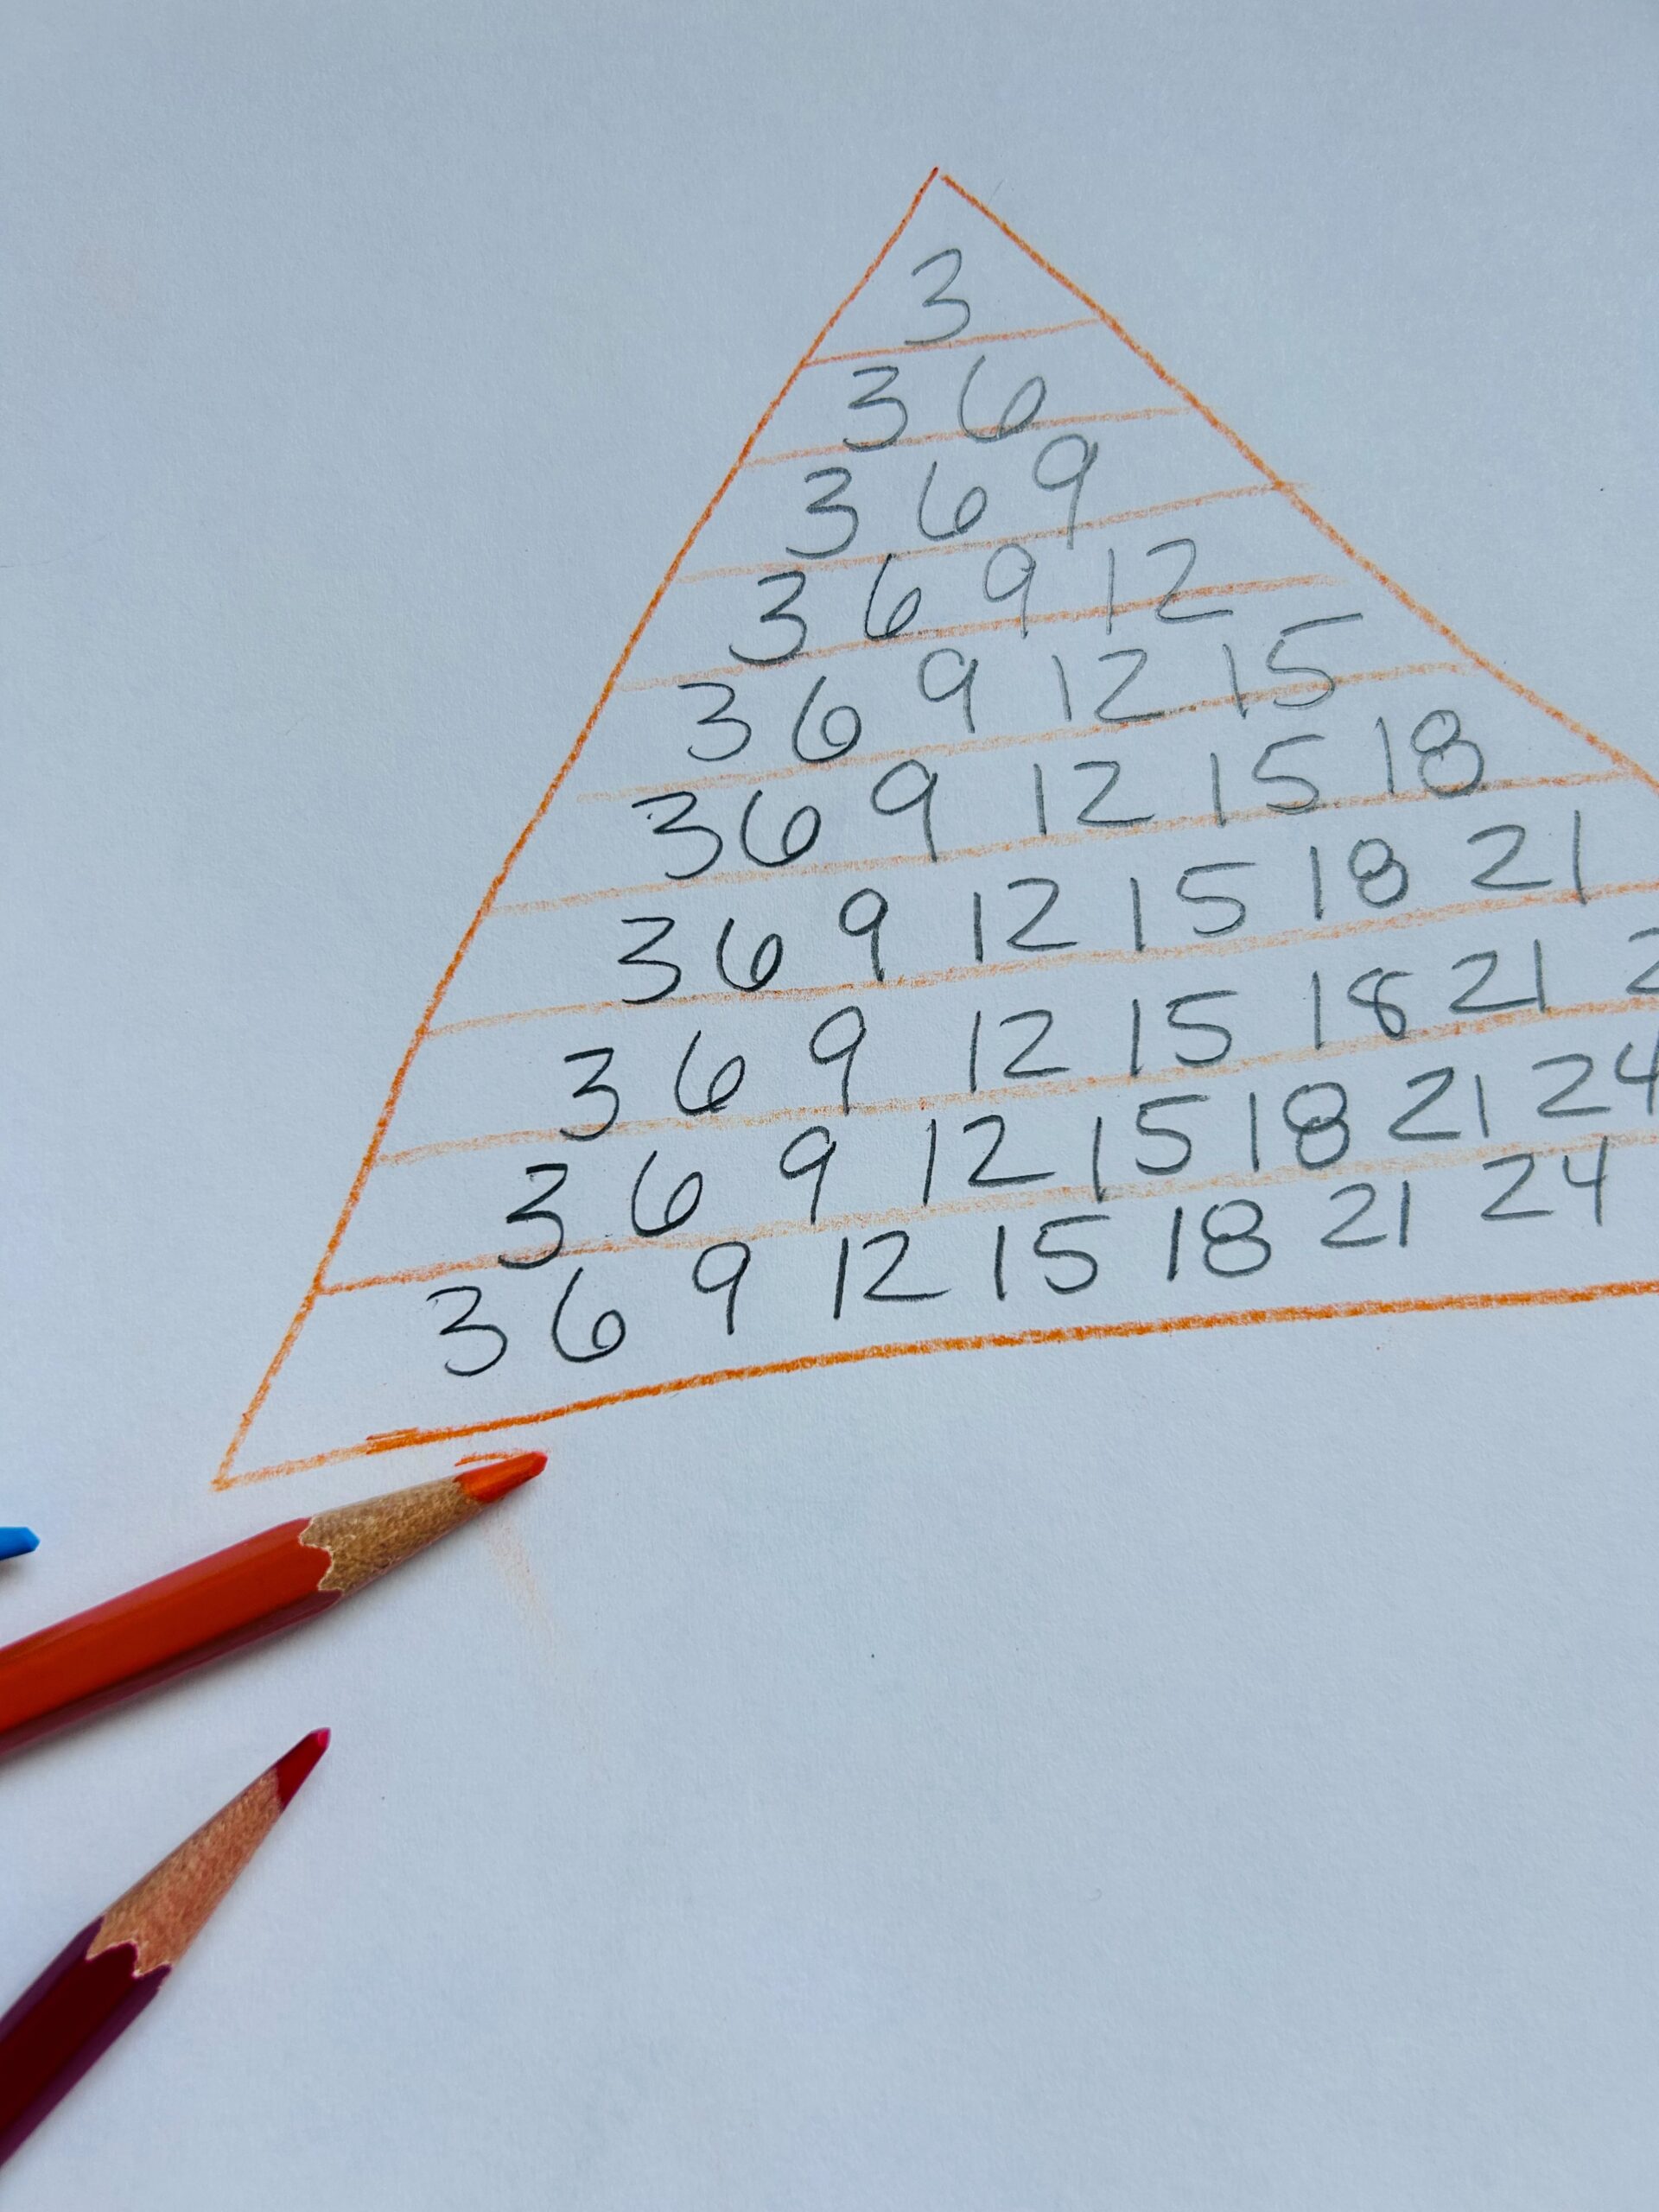 3
3 6
3 6 9
3 6 9 12
3 6 9 12 15
3 6 9 12 15 18
3 6 9 12 15 18 21
3 6 9 12 15 18 21
3 6 9 12 15 18 21 24
3 6 9 12 15 18 21 24